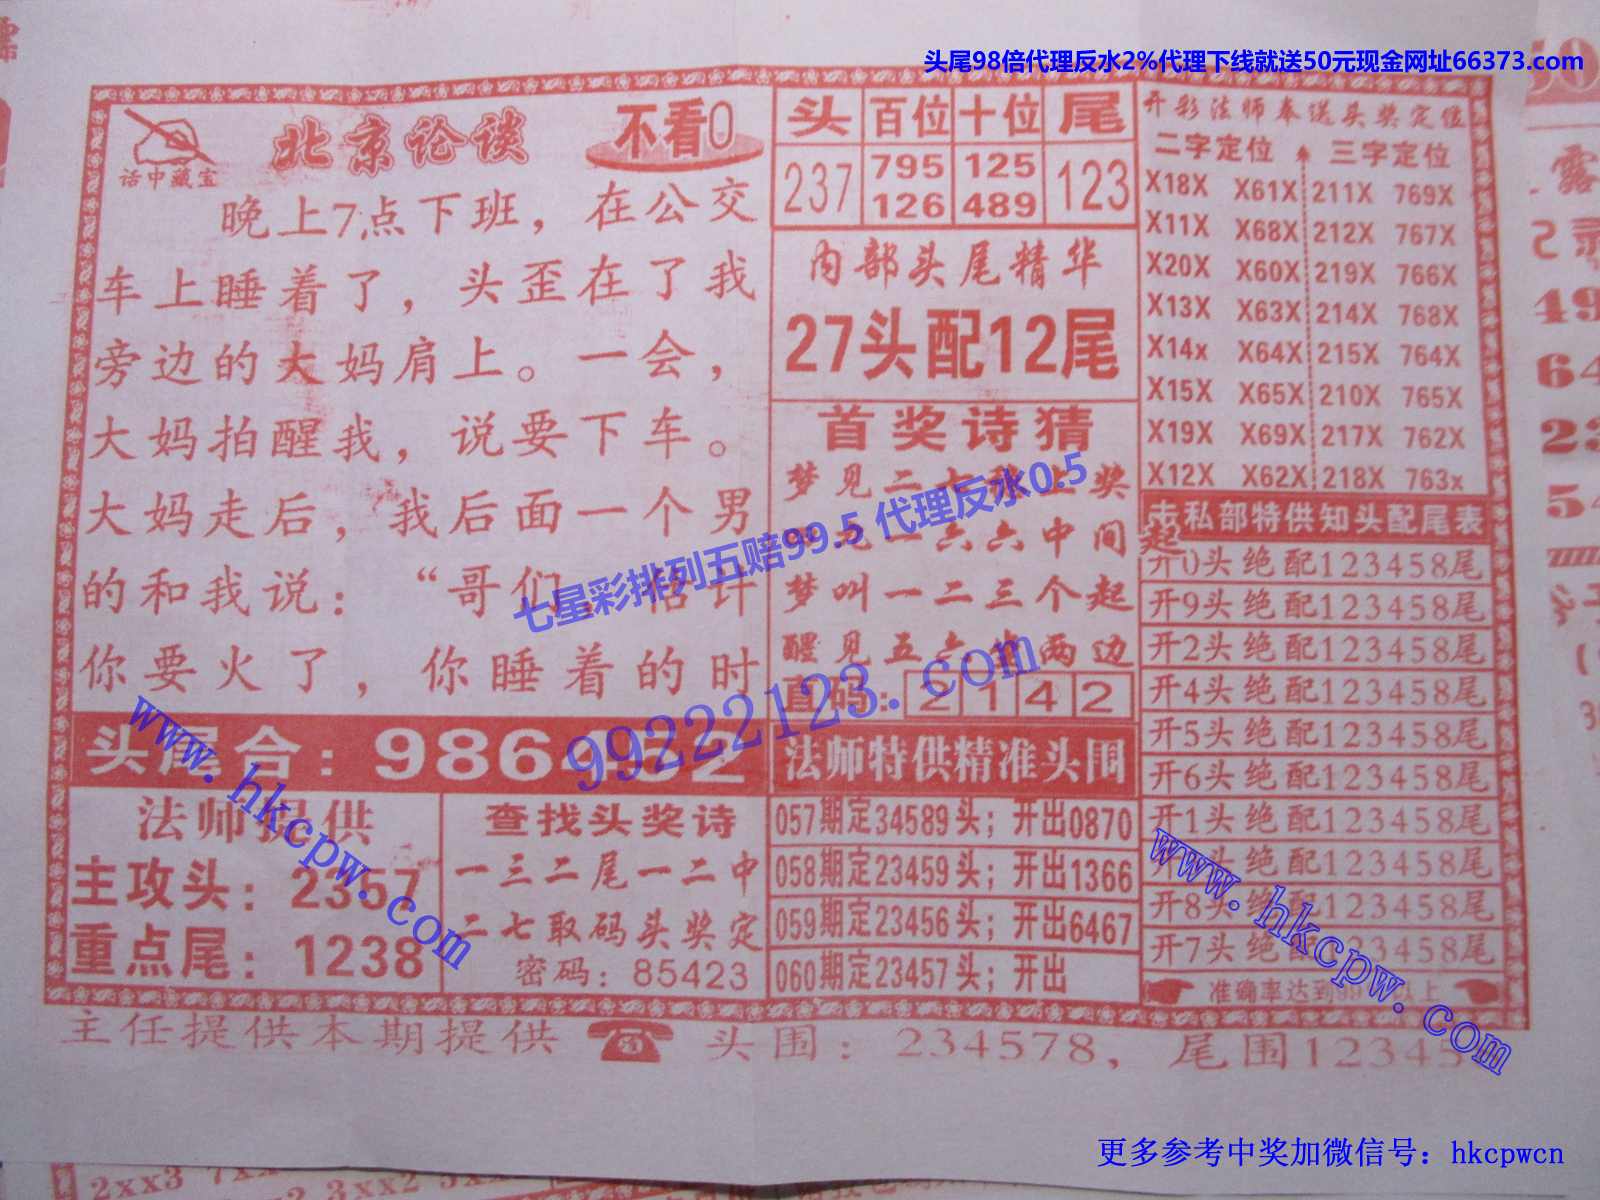 头尾98倍代理反水2%代理下线就送50元现金网址66373.com
话中藏宝
北京论谈
不看0
晚上7点下班，在公交
车上睡着了，头歪在了我
旁边的大妈肩上。一会，
大妈拍醒我，说要下车。
大妈走后，我后面一个男
的和我说：“哥们，估计
你要火了，你睡着的时
头尾合：98645 2
法师提供
主攻头：2357
重点尾：1238
查找头奖诗
一三二尾一二中
二七取码头奖定
密码：85423
头 百位 十位 尾
237 795 125 123
126 489
内部头尾精华
27头配12尾
首奖诗猜
梦见二七 上奖
见一六六中间
梦叫一二三个起
醒见五六 两边
直码：2142
法师特供精准头围
057期定34589头；开出0870
058期定23459头；开出1366
059期定23456头；开出6467
060期定23457头；开出
开彩法师奉送头奖定位
二字定位 三字定位
X18X X61X 211X 769X
X11X X68X 212X 767X
X20X X60X 219X 766X
X13X X63X 214X 768X
X14x X64X 215X 764X
X15X X65X 210X 765X
X19X X69X 217X 762X
X12X X62X 218X 763x
私部特供知头配尾表
起
开0头绝配123458尾
开9头绝配123458尾
开2头绝配123458尾
开4头绝配123458尾
开5头绝配123458尾
开6头绝配123458尾
开1头绝配123458尾
头绝配123458尾
开8头绝配123458尾
开7头绝配123458尾
准确率达到99 上
主任提供本期提供 头围：234578，尾围12345
七星彩排列五赔99.5 代理反水0.5
99222123.com
www.hkcpw.com
www.hkcpw.com
更多参考中奖加微信号：hkcpwcn
2xx3 7xx
3xx2